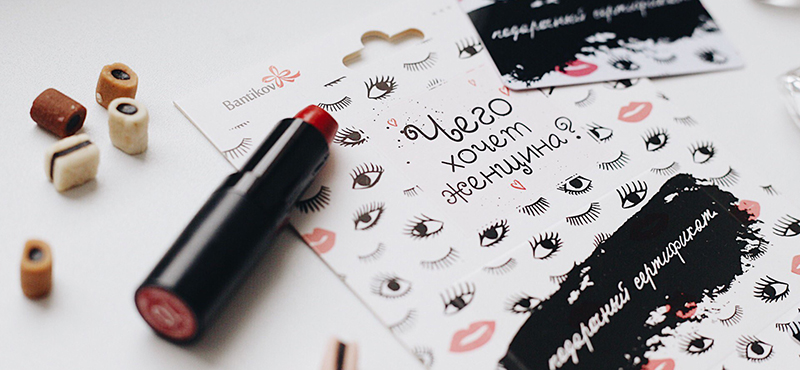 подарочный сертификат
Bantikov
Чего
хочет
женщина?
подарочный сертификат